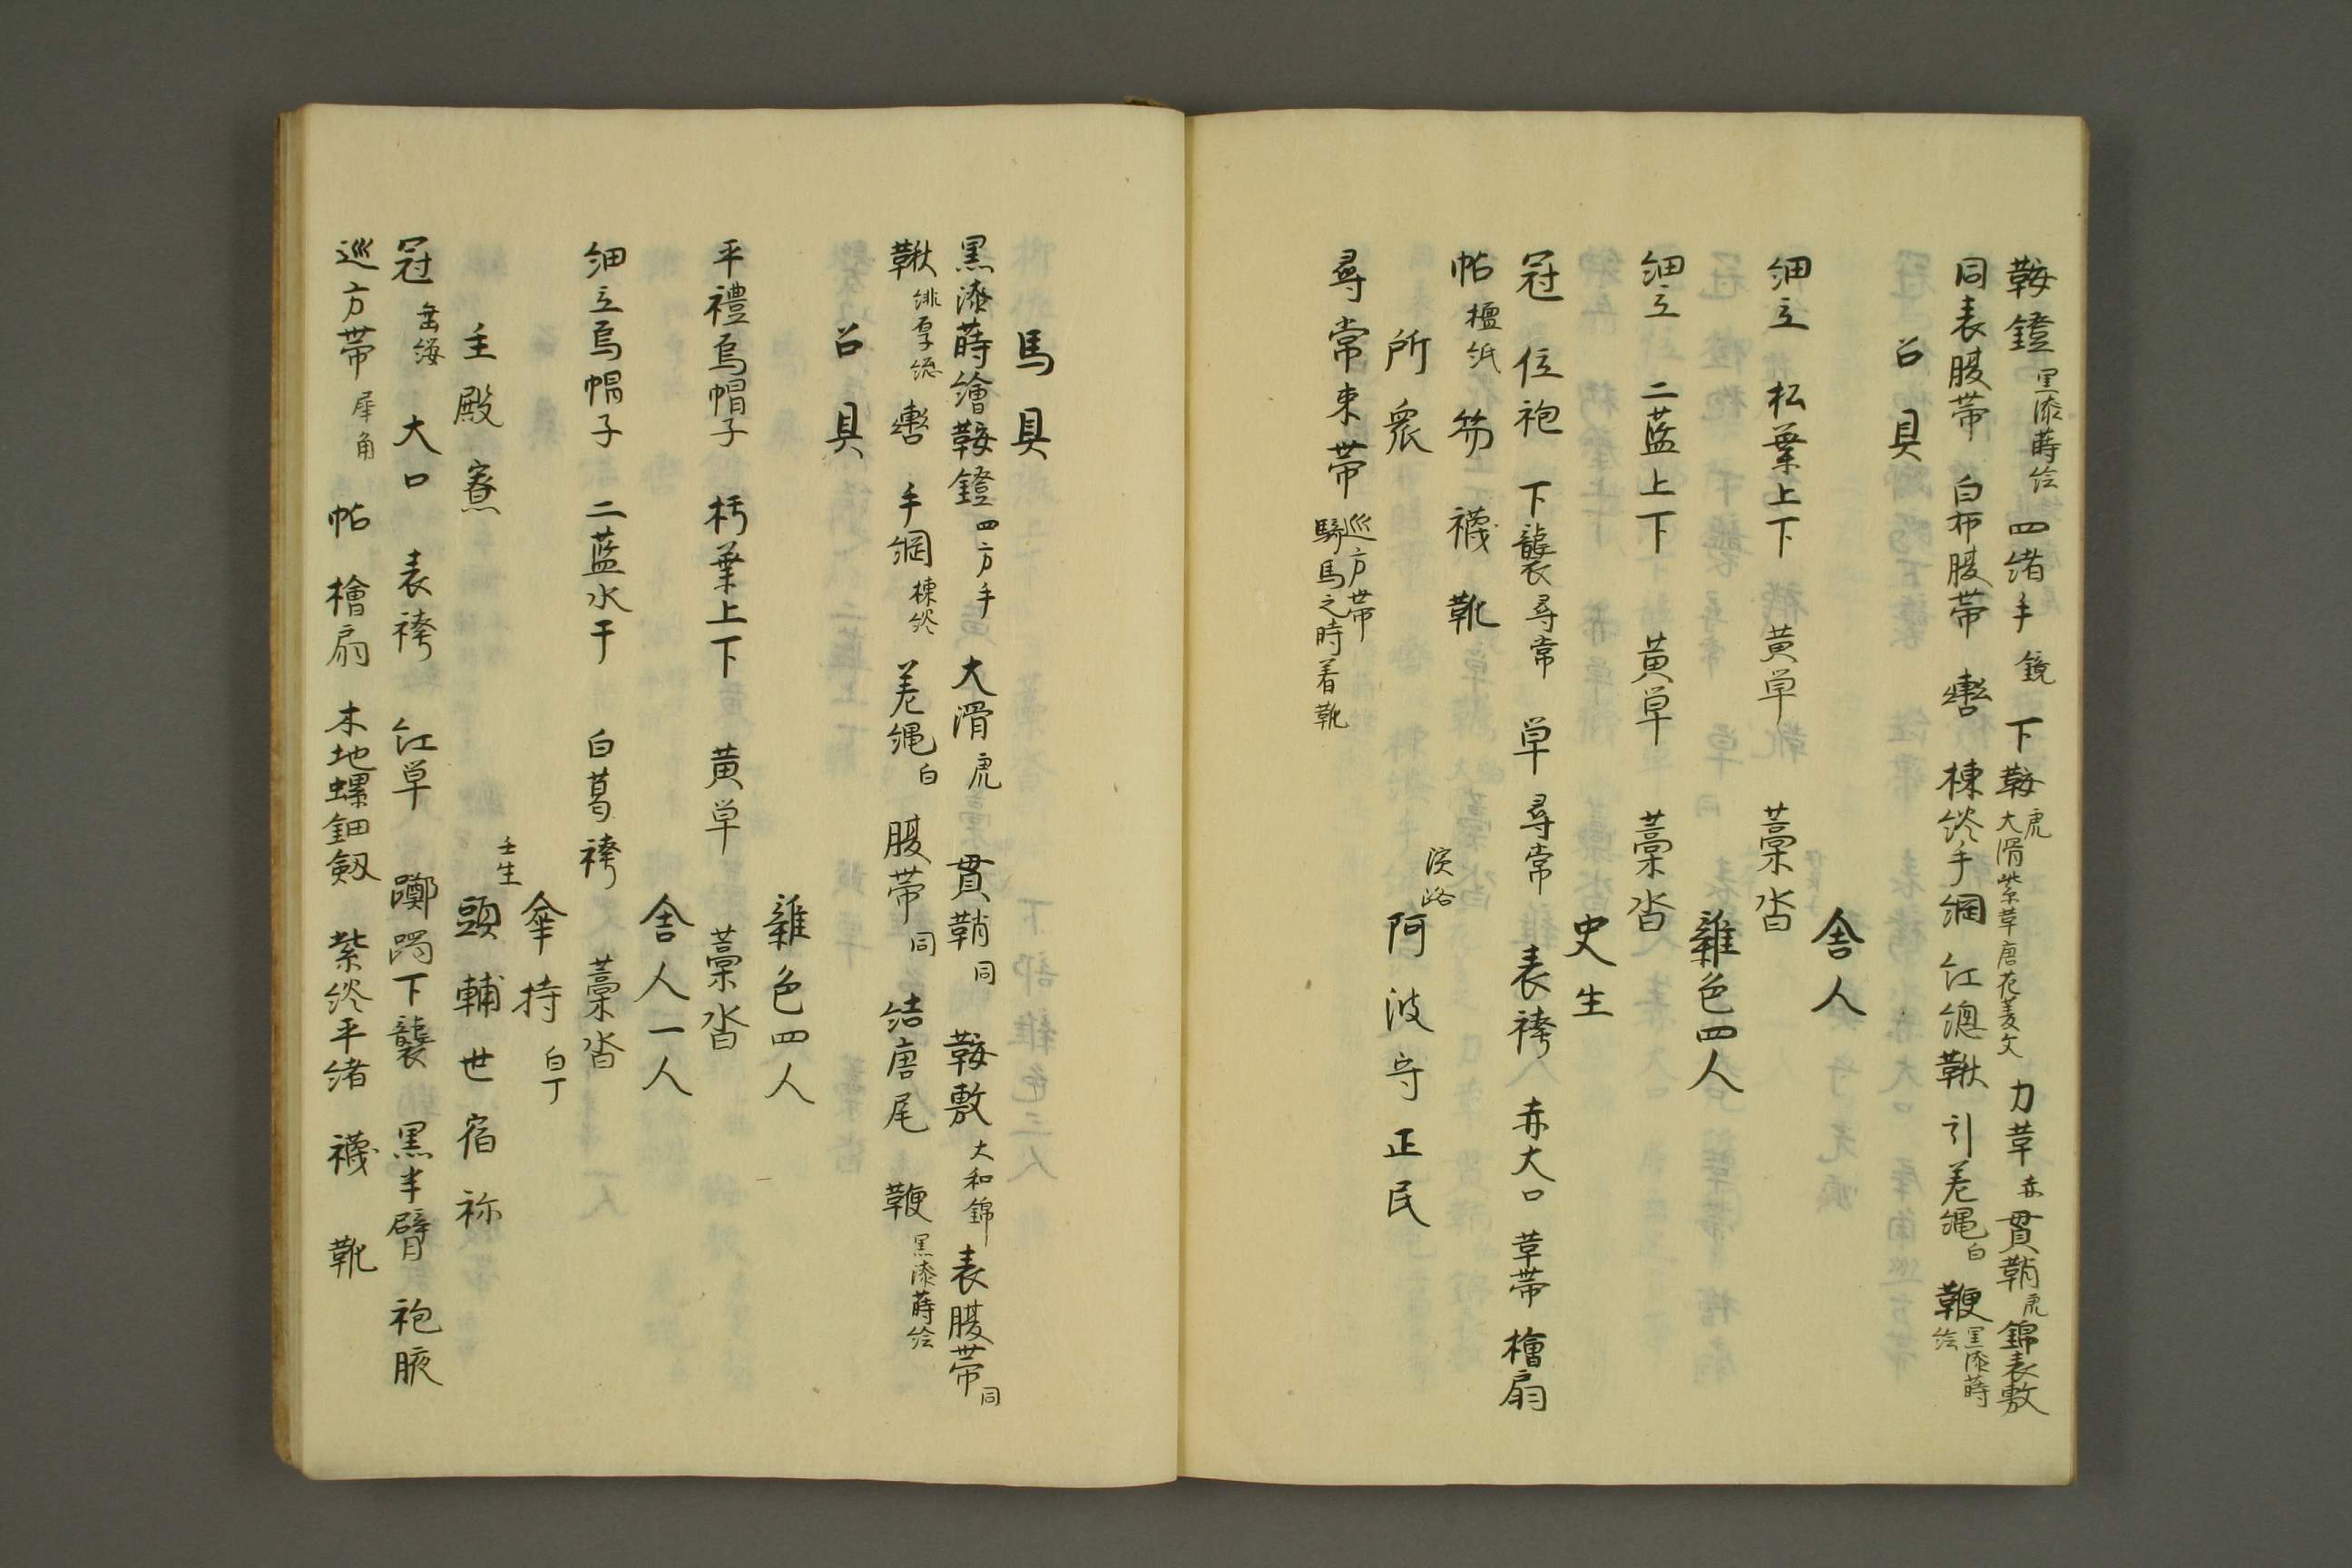 鞍鐙黒漆蒔絵 四緒手鏡 下鞍虎大滑紫革唐花菱文 力革赤 貫鞘虎 錦表敷
同表腹帯 白布腹帯 轡 棟絵手綱 紅總鞦 引差縄白 鞭黒漆蒔絵
召具
舎人
細立 松葉上下 黄単 藁沓
雑色四人
細立 二藍上下 黄単 藁沓
史生
冠 位袍 下襲尋常 単尋常 表袴 赤大口 革帯 檜扇
帖檀紙 笏 襪 靴
所衆 淡路 阿波守正民
尋常束帯 巡方帯 騎馬之時着靴
馬具
黒漆蒔繪鞍鐙四方手 大滑虎 貫鞘同 鞍敷大和錦 表腹帯同
鞦緋厚総 轡 手綱棟絵 差縄白 腹帯同 結唐尾 鞭黒漆蒔絵
召具
雑色四人
平禮烏帽子 朽葉上下 黄単 藁沓
舎人一人
細立烏帽子 二藍水干 白葛袴 藁沓
傘持白丁
主殿寮 壬生 頭輔世宿祢
冠垂纓 大口 表袴 紅単 躑躅下襲 黒半臂 袍腋
巡方帯犀角 帖 檜扇 木地螺鈿剱 紫絵平緒 襪 靴